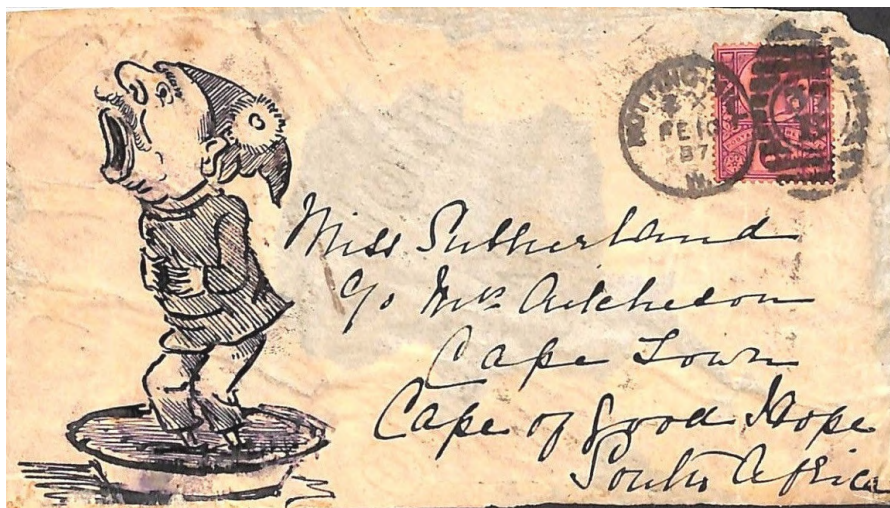 NOTTINGHAM
X
FE 10
87
Miss Sutherland
c/o Mrs Aitcheson
Cape Town
Cape of Good Hope
South Africa